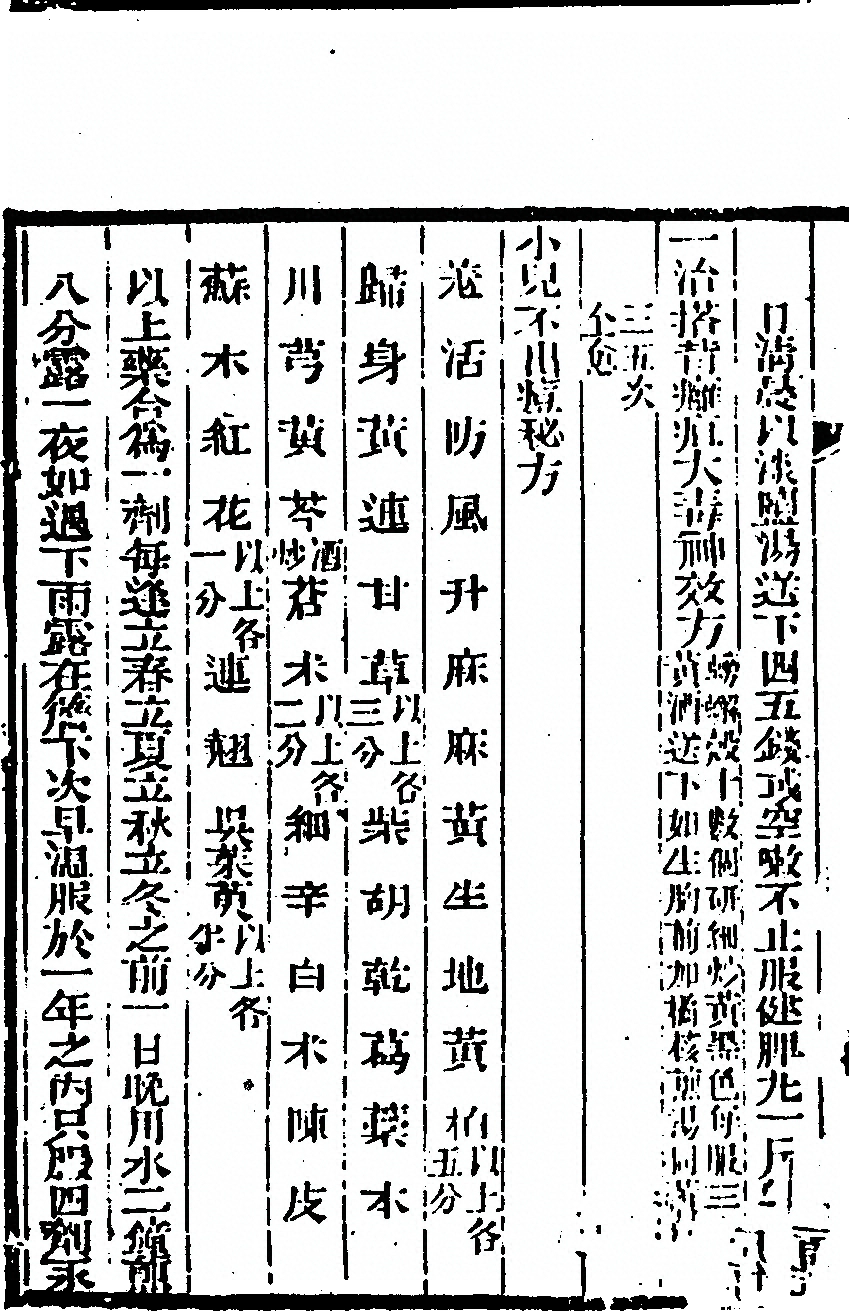 日淸晨以淡鹽湯送下四五錢或空嗽不止服健脾丸一斤
一治搭背癰疽大毒神效方螃蠏殼十數個研細炒黃黑色每服三
黃酒送下如生胸前加橘核煎湯同黃
三五次
全愈
小兒不出痘秘方
羗活防風升麻麻黃生地黃柏以上各五分
歸身黃連甘草以上各三分柴胡乾葛藁本
川芎黃芩酒炒蒼朮以上各二分細辛白朮陳皮
蘇木紅花以上各一分連翹吳茱萸以上各半分
以上藥合爲一劑每逢立春立夏立秋立冬之前一日晚用水二鍾煎
八分露一夜如遇下雨露在簷下次早溫服於一年之內只服四劑永